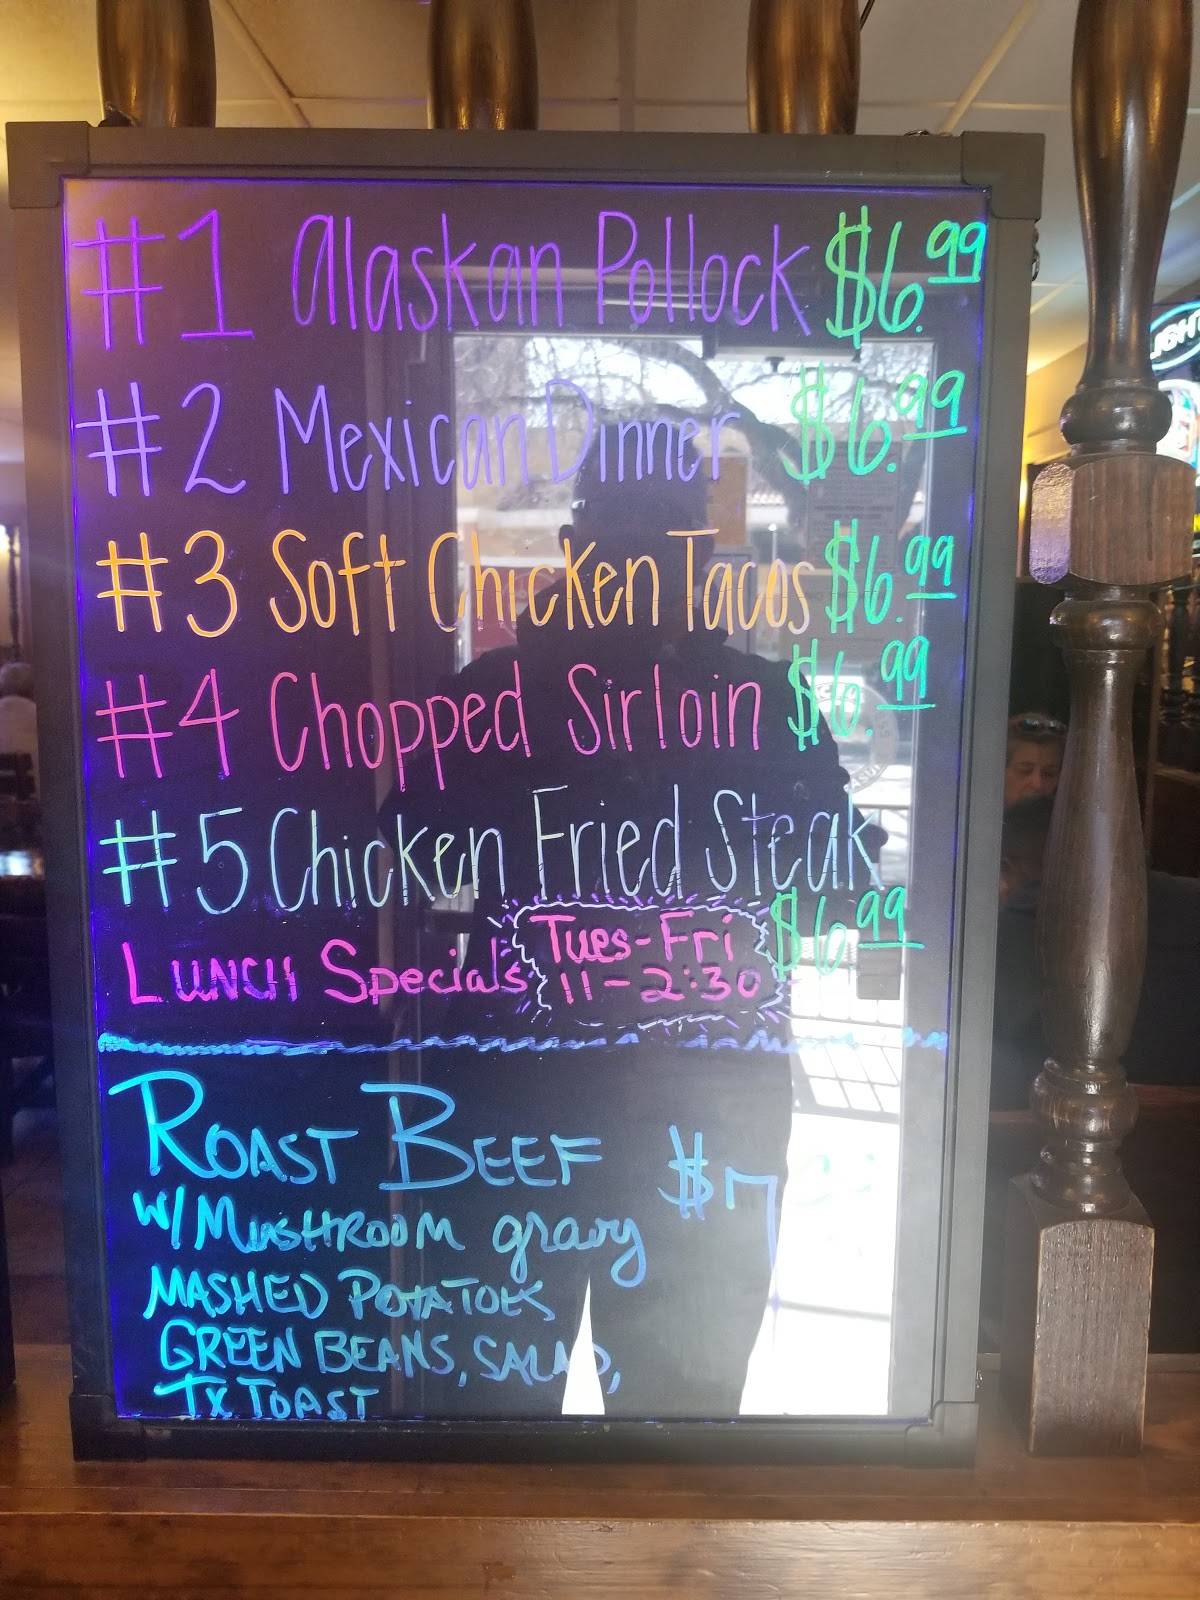 #1 Alaskan Pollock $6.99
#2 Mexican Dinner $6.99
#3 Soft Chicken Tacos $6.99
#4 Chopped Sirloin $6.99
#5 Chicken Fried Steak
$6.99
LUNCH Specials Tues-Fri
11-2:30
ROAST BEEF $7
W/MUSHROOM gravy
MASHED POTATOES
GREEN BEANS, SALAD,
TX TOAST